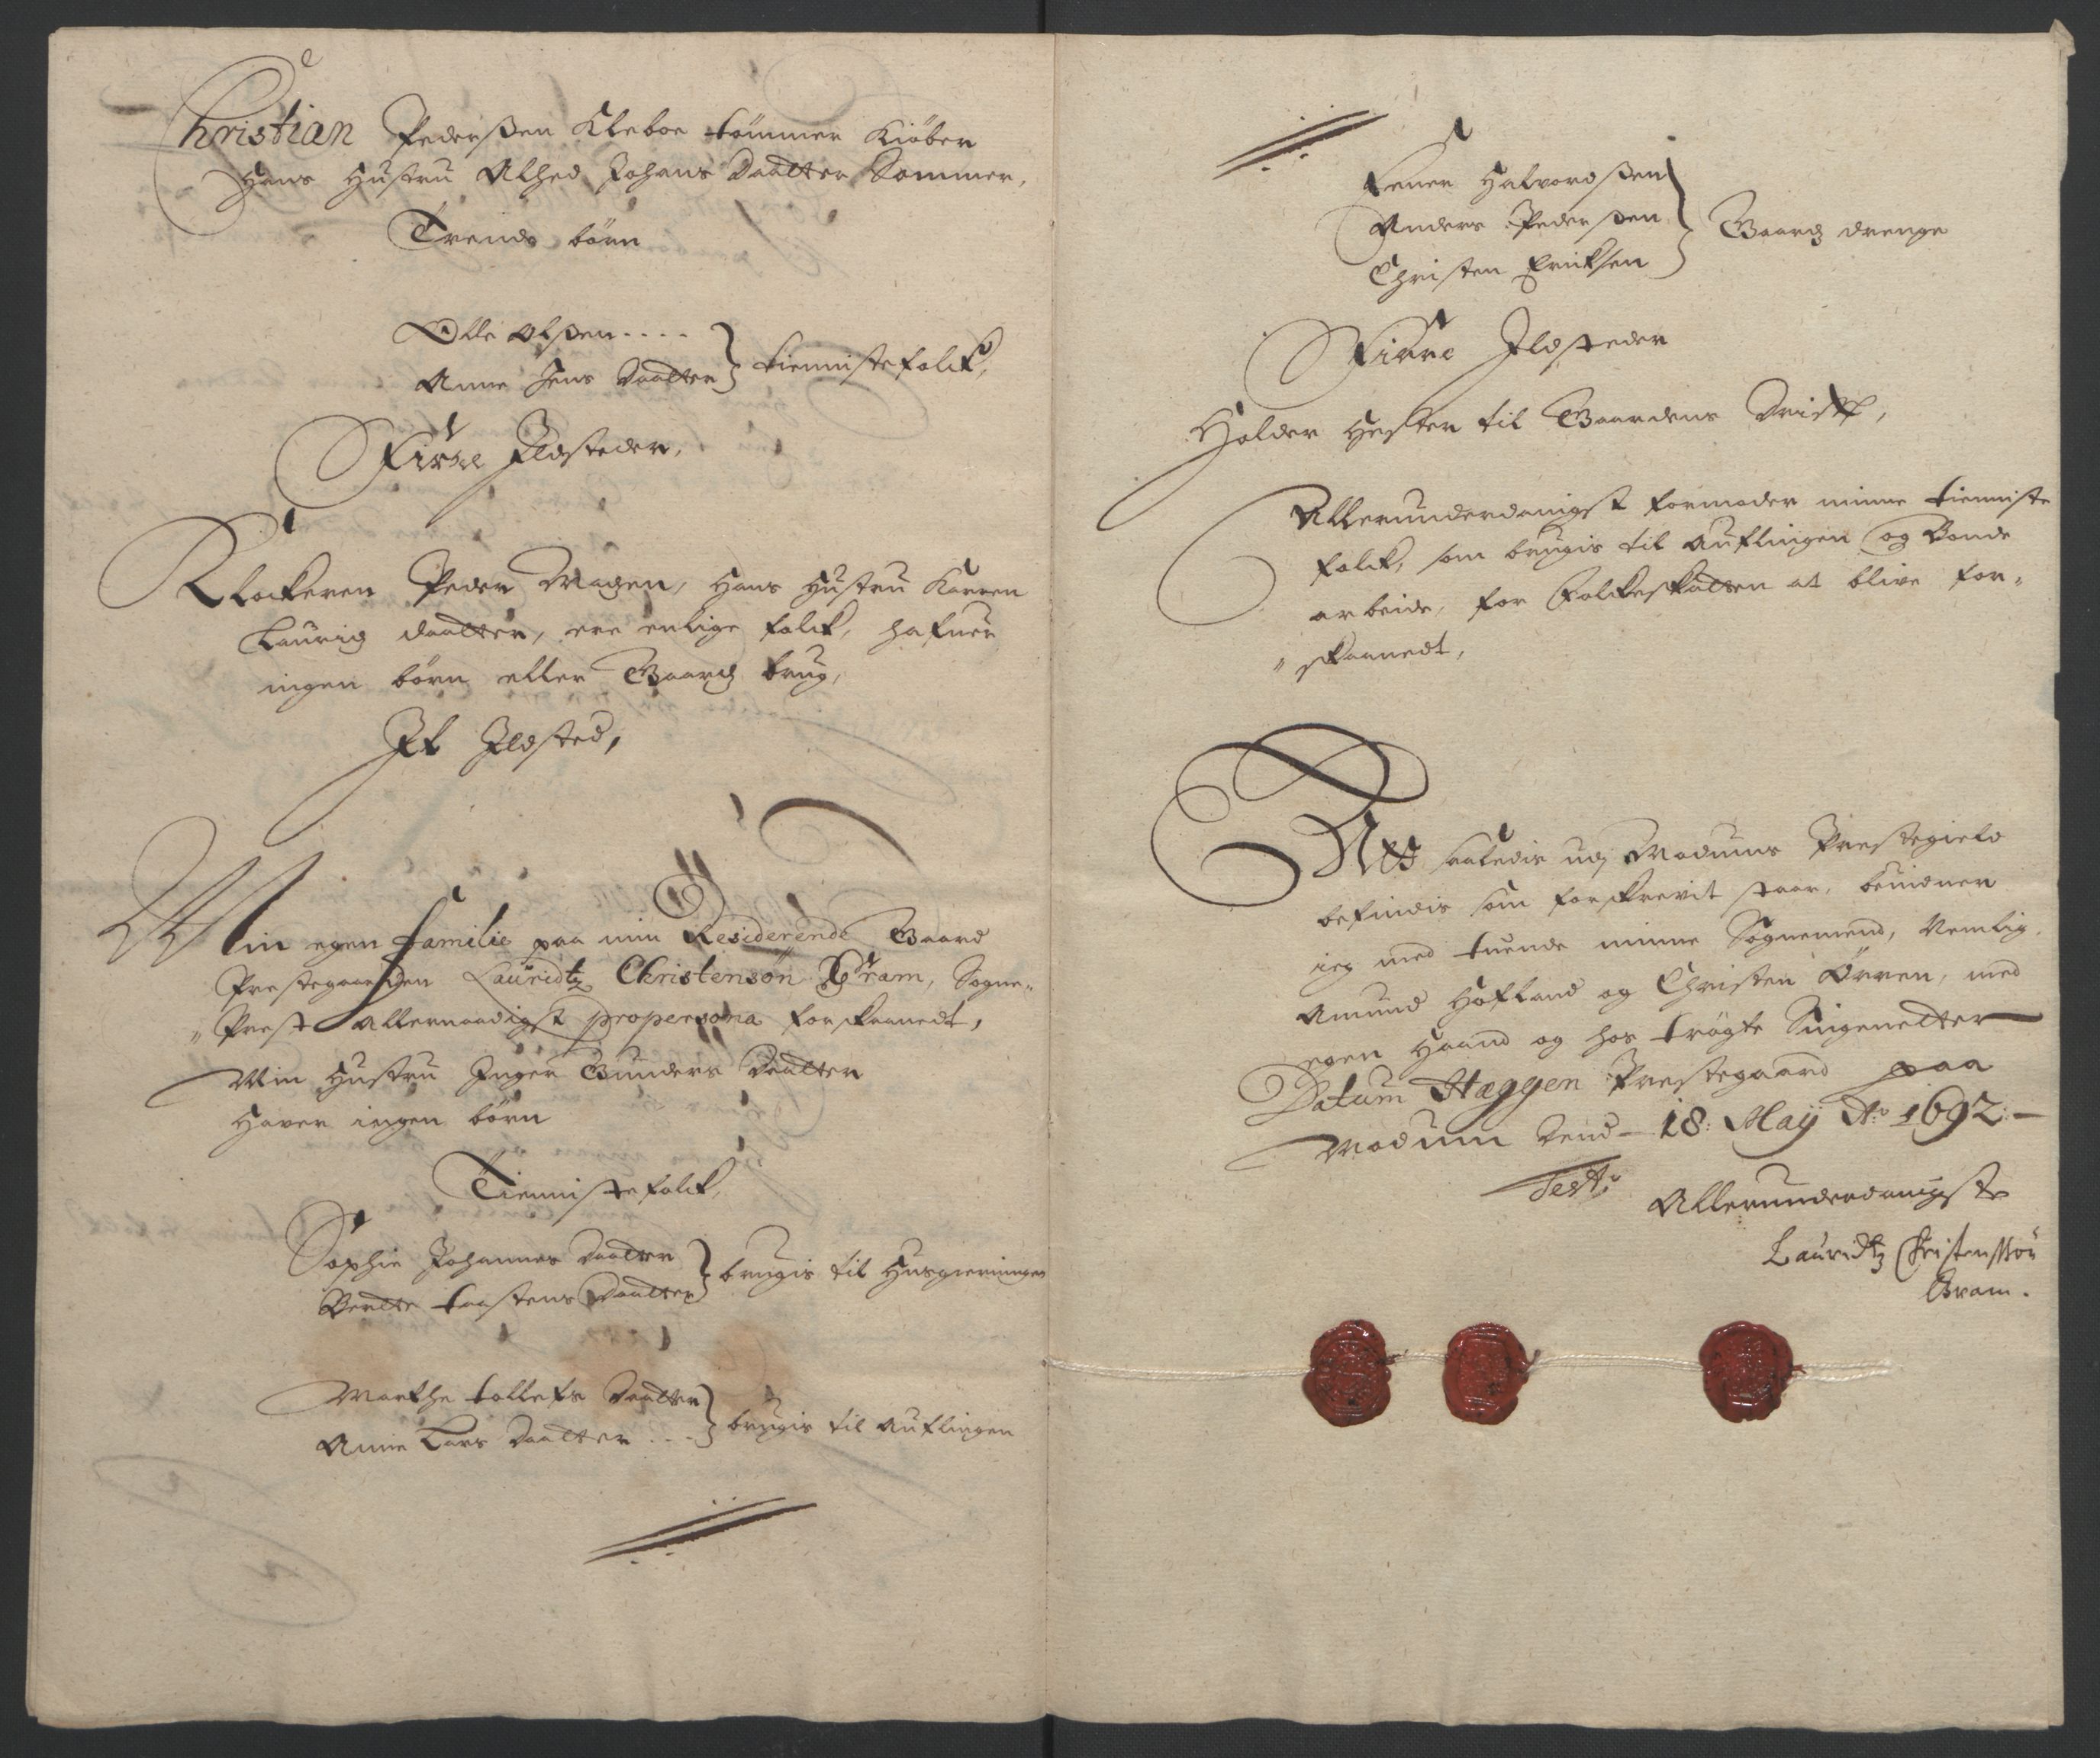 Christian Pederßen Kleboe tømmer Kiøber
Hans Hustru Alhed Johans Daatter Sommer,
Trende børn
Olle Olßen - - - -
Anne Jens Daatter } tiennistefolck,
Firre Ildsteder,
Klockeren Peder Madzen, Hans Hustru Karren
Lauridz daatter, ere enlige folck, hafuer
ingen børn eller Gaardz brug,
It Ildsted,
Min egen familie paa min Residerende Gaard
Prestegaarden Lauridtz Christensøn Gram, Sogne-
„Prest allernaadigst propersona forskaanedt,
Min Hustru Inger Gunders Daatter
Hafver ingen børn
Tiennistefolck,
Sophie Johannes Daatter
Berette tarstens Daatter } brugis til Husgierningen
Marthe tollefs Daatter
Anne Lars Daatter - - - } brugis til Auflingen
Halvordßen
Anders Pederßen
Christen Ericksen } Gaardz drenge
Firre Ildsteder
Holder Hester til Gaardens Drifft,
Allerunderdanigst formoder minne tienniste
folck, som brugis til Auflingen og Bonde
arbeide, for Folckeskatten at blive for-
„skaanedt,
Att saaledis udj Modums Prestegield
befindis som forskrevit staar, bevidner
ieg med tuende minne Sognemend, Nemlig,
Amund Hofland og Christen Ørren, med
egen Haand og hos trøgte Signetter
Datum Heggen Prestegaard paa
Modum Dend - 18: Maij Ao 1692: -
Test:
Allerunderdanigste
Lauridtz Christenssøn
Gram.